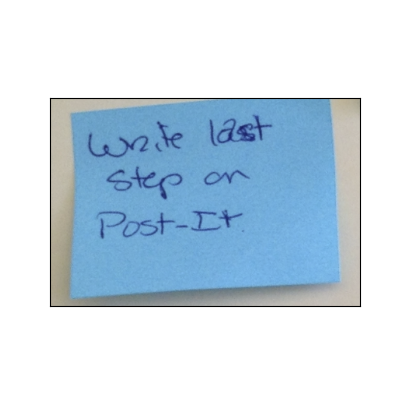 Write last
step on
Post-It